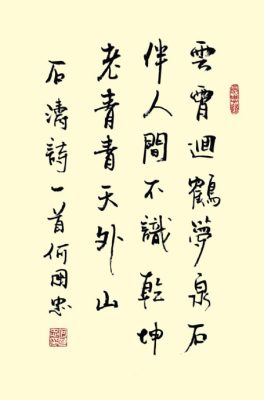 雲霄迴鶴夢泉石
伴人間不識乾坤
老青青天外山
石濤詩一首何國忠